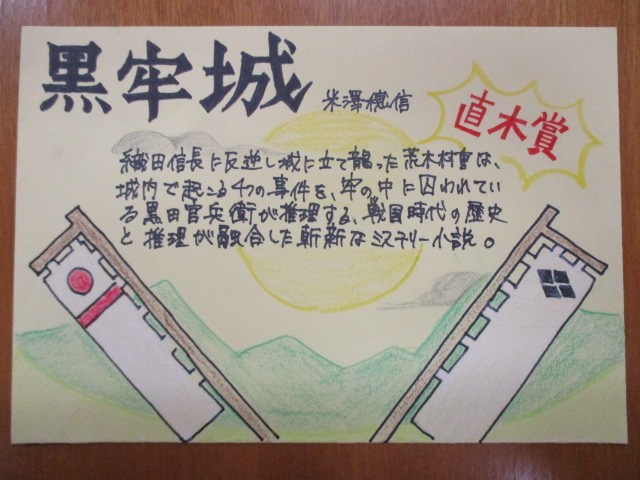 黒牢城
米澤穂信
直木賞
織田信長に反逆し城に立て籠った荒木村重は、
城内で起こる4つの事件を、牢の中に囚われてい
る黒田官兵衛が推理する、戦国時代の歴史
と推理が融合した斬新なミステリー小説。